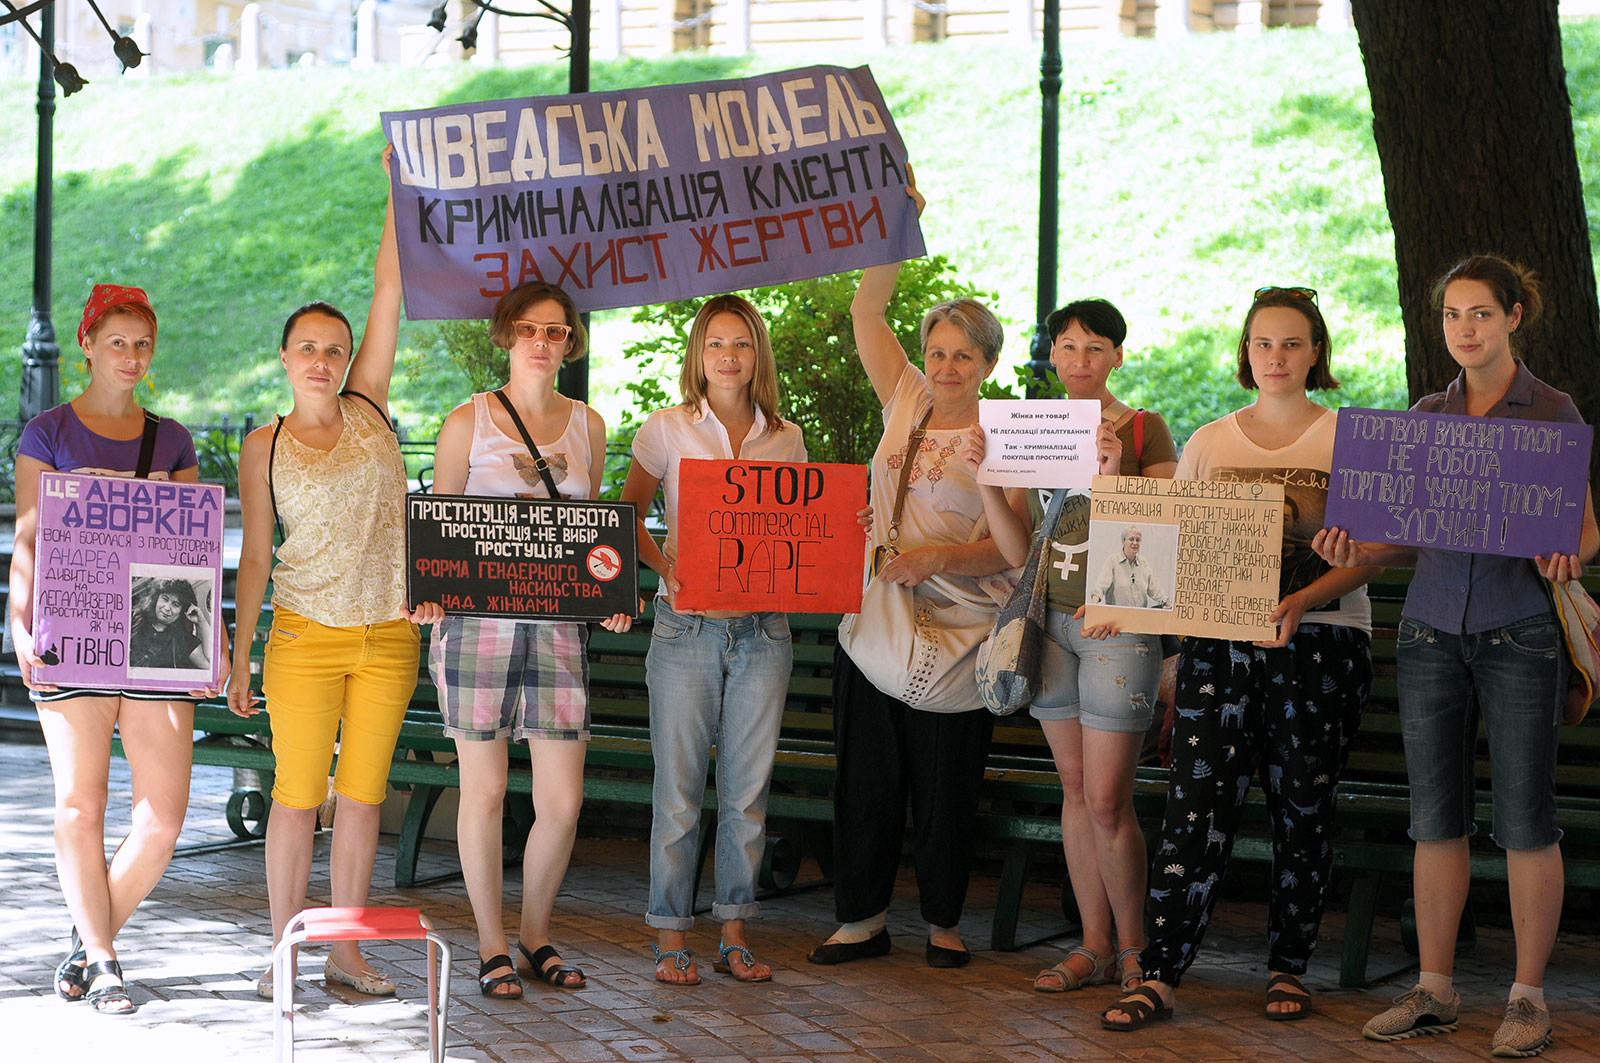 ШВЕДСЬКА МОДЕЛЬ
КРИМІНАЛІЗАЦІЯ КЛІЄНТА
ЗАХИСТ ЖЕРТВИ
ЦЕ АНДРЕА
ДВОРКІН
ВОНА БОРОЛАСЯ З ПРОСТУТОРАМИ
У США
АНДРЕА
ДИВИТЬСЯ
НА
ЛЕГАЛАЙЗЕРІВ
ПРОСТИТУЦІЇ
ЯК НА
ГІВНО
ПРОСТИТУЦІЯ - НЕ РОБОТА
ПРОСТИТУЦІЯ - НЕ ВИБІР
ПРОСТУЦІЯ -
ФОРМА ГЕНДЕРНОГО
НАСИЛЬСТВА
НАД ЖІНКАМИ
STOP
COMMERCIAL
RAPE
Жінка не товар!
Ні ЛЕГАЛІЗАЦІЇ ЗҐВАЛТУВАННЯ!
Так - КРИМІНАЛІЗАЦІЇ
ПОКУПЦІВ ПРОСТИТУЦІЇ!
#за_шведську_модель
ШЕЙЛА ДЖЕФФРИС ♀
ЛЕГАЛИЗАЦИЯ ПРОСТИТУЦИИ НЕ
РЕШАЕТ НИКАКИХ
ПРОБЛЕМ, А ЛИШЬ
УСУГУБЛЯЕТ ВРЕДНОСТЬ
ЭТОЙ ПРАКТИКИ И
УГЛУБЛЯЕТ
ГЕНДЕРНОЕ НЕРАВЕНС
ТВО В ОБЩЕСТВЕ
Frida Kahlo
ТОРГІВЛЯ ВЛАСНИМ ТІЛОМ -
НЕ РОБОТА
ТОРГІВЛЯ ЧУЖИМ ТІЛОМ -
ЗЛОЧИН !